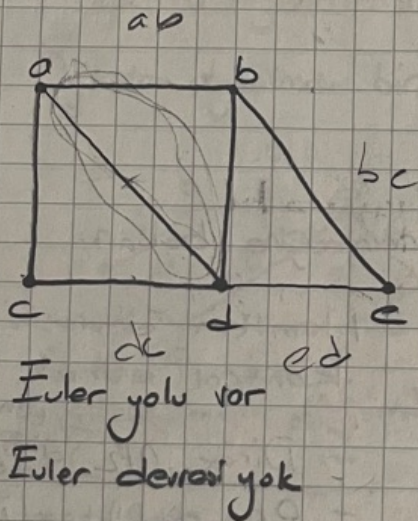 ab
a b
bc
c d e
dc ed
Euler yolu var
Euler devresi yok